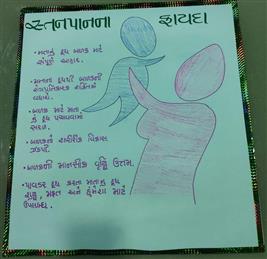 સ્તનપાનના ફાયદા
• માતાનું દૂધ બાળક માટે
સંપૂર્ણ આહાર.
• માતાના દૂધથી બાળકની
રોગપ્રતિકારક શક્તિમાં
વધારો.
• બાળક માટે માતા
નું દૂધ પચાવવામાં
સરળ.
• બાળકનો શારીરિક વિકાસ
ઝડપી.
• બાળકની માનસીક વૃદ્ધિ ઉત્તમ.
• પાવડર દૂધ કરતા માતાનું દૂધ
શુદ્ધ, મફત અને હંમેશા માટે
ઉપલબ્ધ.